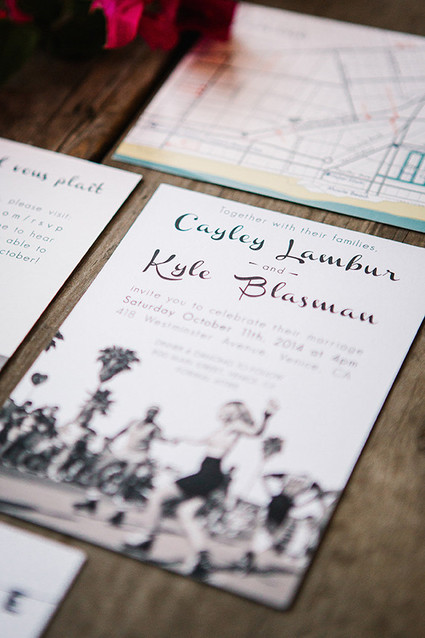 vous plaît
please visit:
om/rsvp
e to hear
able to
ctober!
Together with their families,
Cayley Lambur
- and -
Kyle Blasman
invite you to celebrate their marriage
Saturday October 11th, 2014 at 4pm
418 Westminster Avenue Venice CA
E